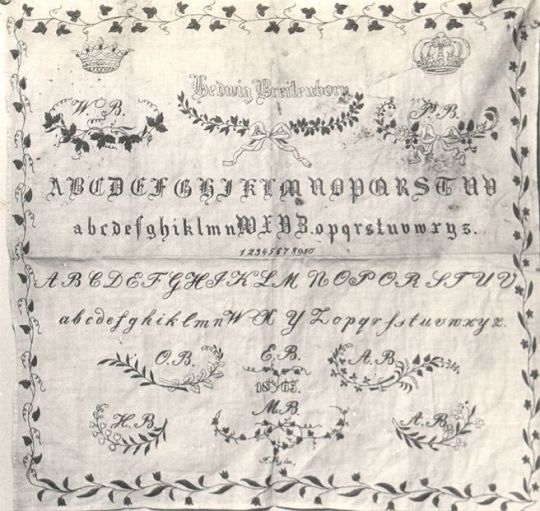 Hedwig Breitenborn
W. B.
P. B.
A B C D E F G H I K L M N O P Q R S T U V
a b c d e f g h i k l m n W X Y Z . o p q r s t u v w x y z .
1 2 3 4 5 6 7 8 9 10
A B C D E F G H I K L M N O P Q R S T U V
a b c d e f g h i k l m n W X Y Z o p q r ſ s t u v w x y z .
O. B.
E. B.
A. B.
H. B.
M. B.
A. B.